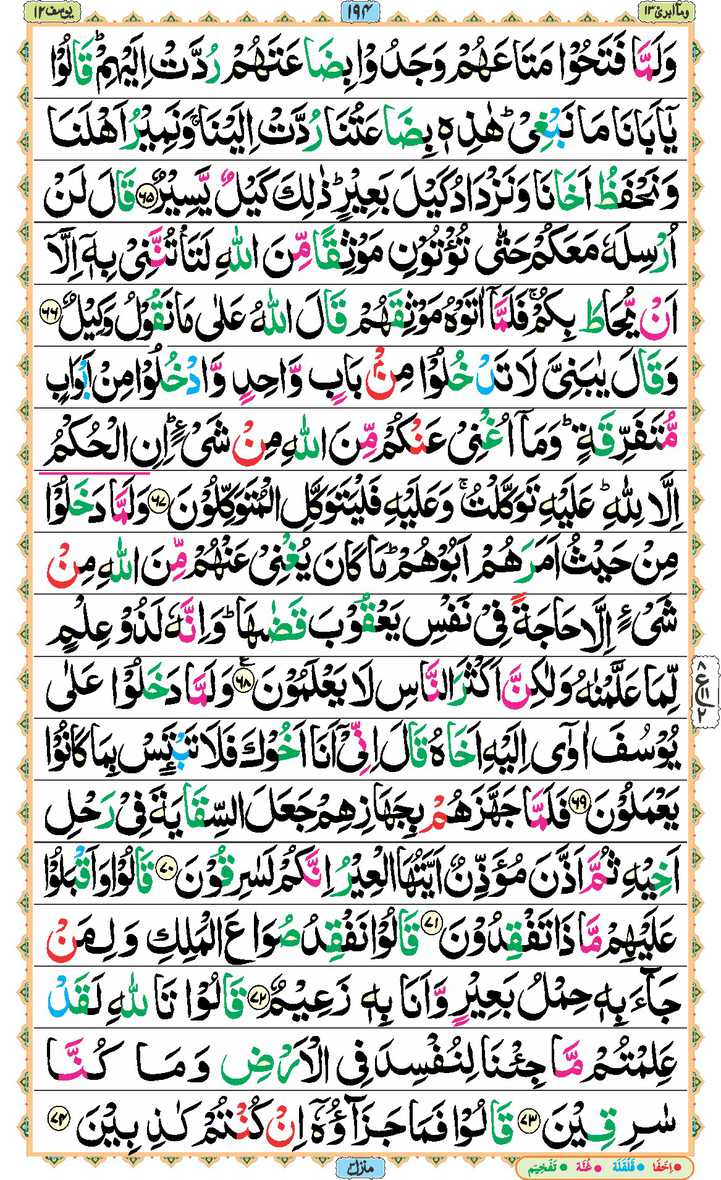 وما ابرئ ١٣ ١٩٤ يوسف ١٢
وَلَمَّا فَتَحُوْا مَتَاعَهُمْ وَجَدُوْا بِضَاعَتَهُمْ رُدَّتْ اِلَيْهِمْ ؕ قَالُوْا
يٰۤاَبَانَا مَا نَبْغِىْ ؕ هٰذِهٖ بِضَاعَتُنَا رُدَّتْ اِلَيْنَا ۚ وَنَمِيْرُ اَهْلَنَا
وَنَحْفَظُ اَخَانَا وَنَزْدَادُ كَيْلَ بَعِيْرٍ ؕ ذٰلِكَ كَيْلٌ يَّسِيْرٌ ﴿۶۵﴾ قَالَ لَنْ
اُرْسِلَهٗ مَعَكُمْ حَتّٰى تُؤْتُوْنِ مَوْثِقًا مِّنَ اللّٰهِ لَتَاْتُنَّنِىْ بِهٖۤ اِلَّاۤ
اَنْ يُّحَاطَ بِكُمْ ۚ فَلَمَّاۤ اٰتَوْهُ مَوْثِقَهُمْ قَالَ اللّٰهُ عَلٰى مَا نَقُوْلُ وَكِيْلٌ ﴿۶۶﴾
وَقَالَ يٰبَنِىَّ لَا تَدْخُلُوْا مِنْۢ بَابٍ وَّاحِدٍ وَّادْخُلُوْا مِنْ اَبْوَابٍ
مُّتَفَرِّقَةٍ ؕ وَمَاۤ اُغْنِىْ عَنْكُمْ مِّنَ اللّٰهِ مِنْ شَىْءٍ ؕ اِنِ الْحُكْمُ
اِلَّا لِلّٰهِ ؕ عَلَيْهِ تَوَكَّلْتُ ۚ وَعَلَيْهِ فَلْيَتَوَكَّلِ الْمُتَوَكِّلُوْنَ ﴿۶۷﴾ وَلَمَّا دَخَلُوْا
مِنْ حَيْثُ اَمَرَهُمْ اَبُوْهُمْ ؕ مَا كَانَ يُغْنِىْ عَنْهُمْ مِّنَ اللّٰهِ مِنْ
شَىْءٍ اِلَّا حَاجَةً فِىْ نَفْسِ يَعْقُوْبَ قَضٰٮهَا ؕ وَاِنَّهٗ لَذُوْ عِلْمٍ
لِّمَا عَلَّمْنٰهُ وَلٰكِنَّ اَكْثَرَ النَّاسِ لَا يَعْلَمُوْنَ ﴿۶۸﴾ وَلَمَّا دَخَلُوْا عَلٰى
يُوْسُفَ اٰوٰٓى اِلَيْهِ اَخَاهُ قَالَ اِنِّىْۤ اَنَا اَخُوْكَ فَلَا تَبْتَٮِٕسْ بِمَا كَانُوْا
يَعْمَلُوْنَ ﴿۶۹﴾ فَلَمَّا جَهَّزَهُمْ بِجَهَازِهِمْ جَعَلَ السِّقَايَةَ فِىْ رَحْلِ
اَخِيْهِ ثُمَّ اَذَّنَ مُؤَذِّنٌ اَيَّتُهَا الْعِيْرُ اِنَّكُمْ لَسٰرِقُوْنَ ﴿۷۰﴾ قَالُوْا وَاَقْبَلُوْا
عَلَيْهِمْ مَّاذَا تَفْقِدُوْنَ ﴿۷۱﴾ قَالُوْا نَفْقِدُ صُوَاعَ الْمَلِكِ وَلِمَنْ
جَآءَ بِهٖ حِمْلُ بَعِيْرٍ وَّاَنَا بِهٖ زَعِيْمٌ ﴿۷۲﴾ قَالُوْا تَاللّٰهِ لَقَدْ
عَلِمْتُمْ مَّا جِئْنَا لِنُفْسِدَ فِى الْاَرْضِ وَمَا كُنَّا
سٰرِقِيْنَ ﴿۷۳﴾ قَالُوْا فَمَا جَزَآؤُهٗۤ اِنْ كُنْتُمْ كٰذِبِيْنَ ﴿۷۴﴾
منزل ۳ اِخفَا قَلقَلَة غُنَّه تَفخِيم